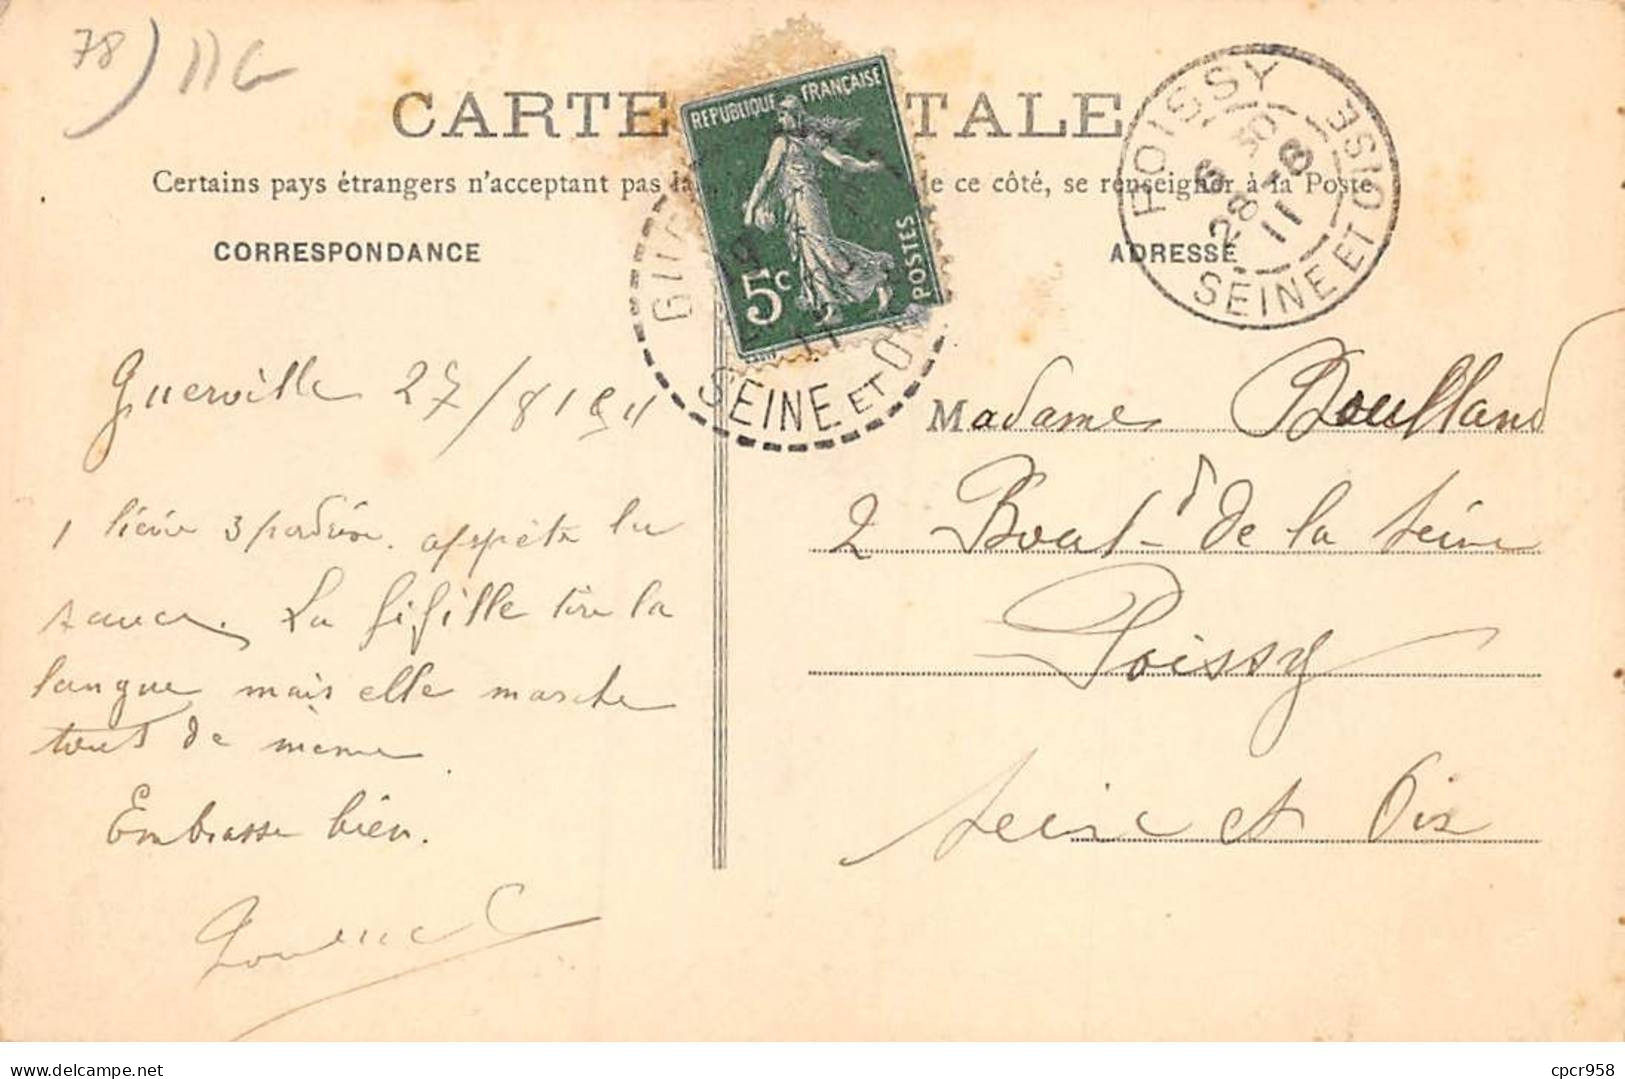 78) 11G
CARTE TALE
Certains pays étrangers n'acceptent pas la e ce côté, se renseigner à la Poste
CORRESPONDANCE
ADRESSE
REPUBLIQUE FRANÇAISE
5c POSTES
SEINE ET O
POISSY
6 30
28 -8
11
SEINE ET OISE
Guerville 27/8 1911
1 lièvre 3 perdrix. apprête la
sauce. La fifille tire la
langue mais elle marche
tout de même
Embrasse bien.
Madame Boulland
2 Boul-d de la Seine
Poissy
Seine et Oise
delcampe.net
cpcr958